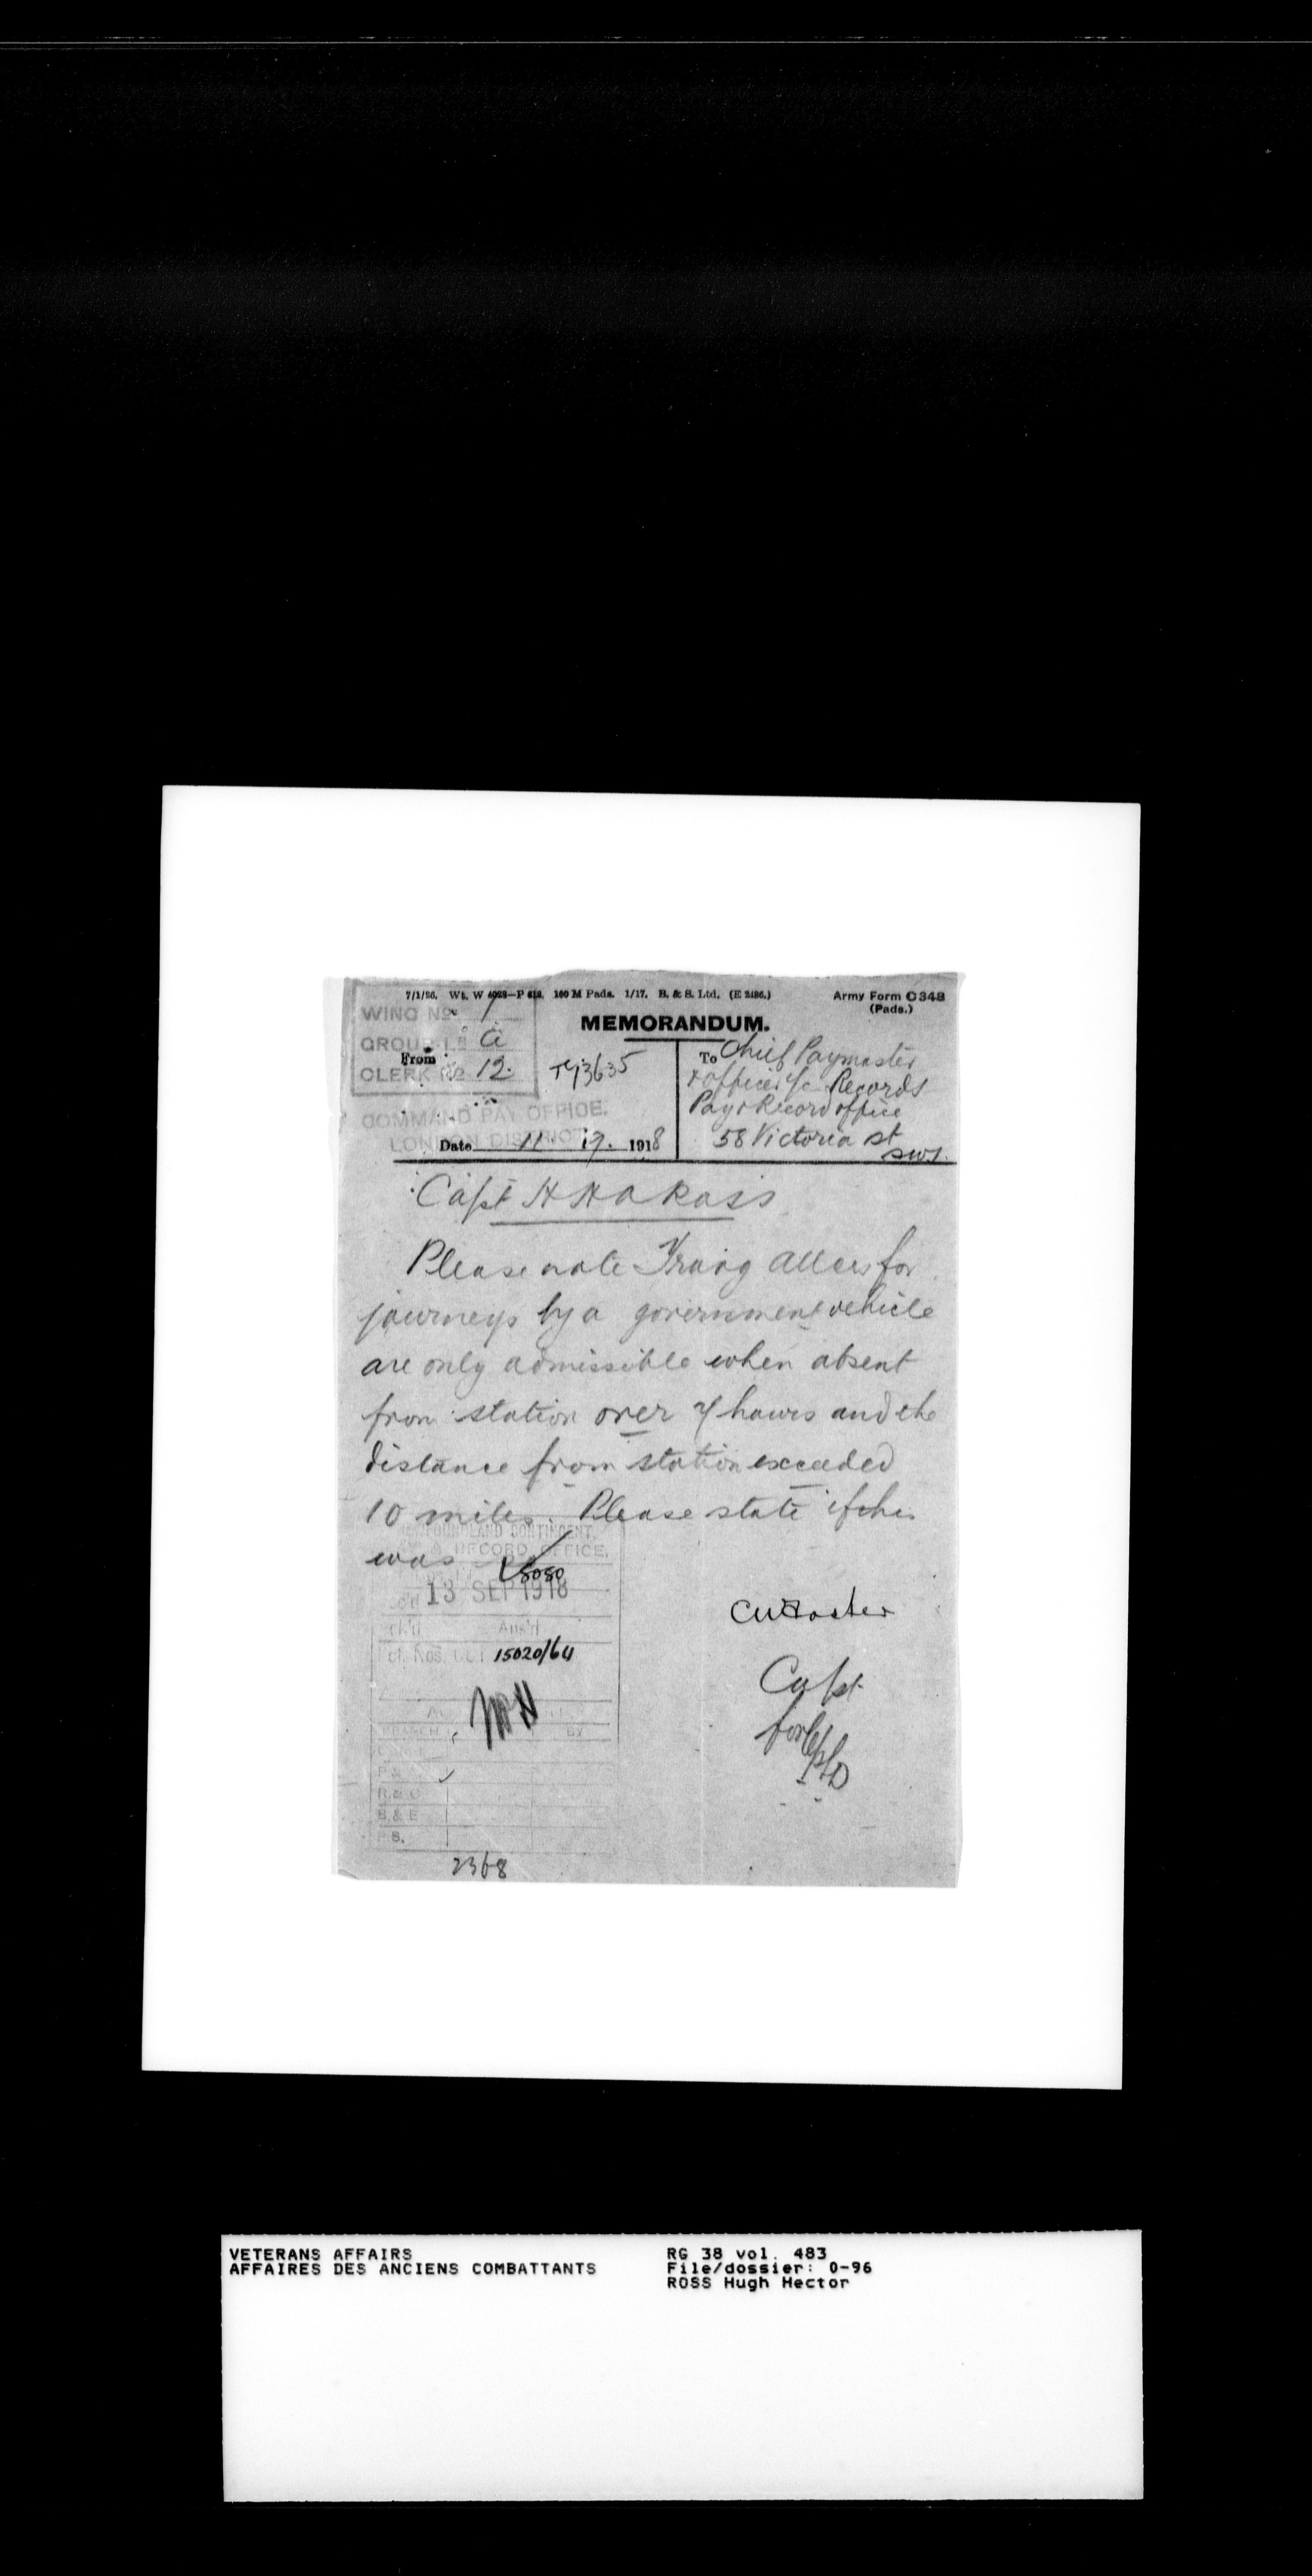 7/1/26. Wt. W 4028—P 612. 160 M Pads. 1/17. B. & S. Ltd. (E 2486.)
Army Form C 348
(Pads.)
WING No 1
MEMORANDUM.
GROUP a
From
CLERK No 12.
To Chief Paymaster
& officer i/c Records
Pay & Record office
58 Victoria St
SW1.
COMMAND PAY OFFICE.
LONDON DISTRICT
Date 11 1918
Capt H H A Ross
Please note allces for
journeys by a government vehicle
are only admissible when absent
from station over hours and the
distance from station exceeded
10 miles. Please state if this
was so
NEWFOUNDLAND CONTINGENT,
RECORD OFFICE.
13 SEP 1918
Ans'd
15020/64
BRANCH BY
R & C
B & E
2368
Capt
for
VETERANS AFFAIRS
AFFAIRES DES ANCIENS COMBATTANTS
RG 38 vol. 483
File/dossier: 0-96
ROSS Hugh Hector